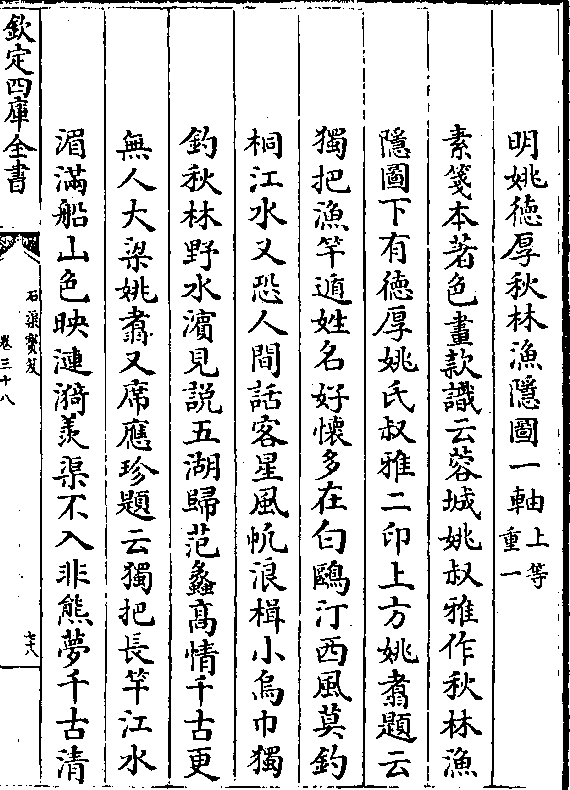 明姚德厚秋林漁隱圖一軸上等重一
素箋本著色畫款識云蓉城姚叔雅作秋林漁
隱圖下有德厚姚氏叔雅二印上方姚翥題云
獨把漁竿遁姓名好懷多在白鷗汀西風莫釣
桐江水又恐人間話客星風帆浪楫小烏巾獨
釣秋林野水濵見説五湖歸范蠡髙情千古更
無人大梁姚翥又席應珍題云獨把長竿江水
湄滿船山色映漣漪羨渠不入非熊夢千古清
欽定四庫全書
石渠寳笈
卷三十八